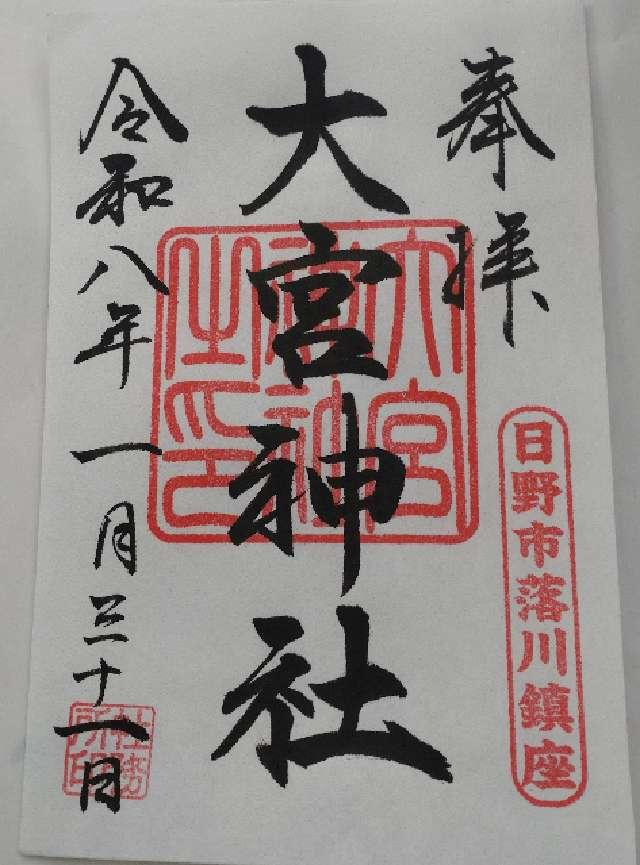 奉拝
日野市落川鎮座
大宮神社
大宮神社之印
令和八年一月三十一日
社務所印